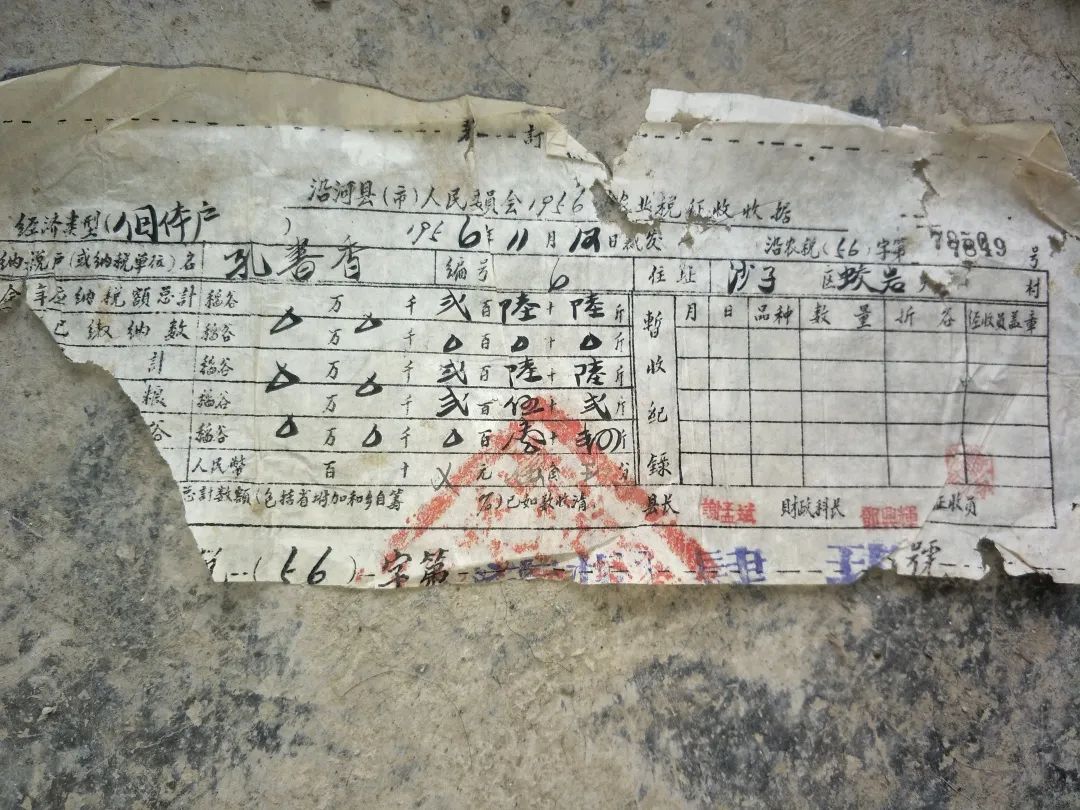 訂
沿河县(市)人民委員会1956 农业税征收收据
经济类型(个体户)
1956年11月12日填发
沿农税(56)字第 号
纳税户(或纳税单位)名 孔書香 编号 6 住址 沙子区蛟岩 村
全年应纳税额总計 稻谷 0万0千弍百陸十陸斤
已缴纳数 稻谷 万 千0百0十0斤
計 稻谷 0万0千弍百陸十陸斤
粮 稻谷 万 千弍百伍十弍斤
谷 稻谷 0万0千0百壹十 斤
人民幣 百 十 元 分
暫收紀錄
月 日 品种 数量 折谷 经收员盖章
总計数額(包括省附加和乡自筹 )已如数收清
县长 財政科长 征收员
税(56)字第 號